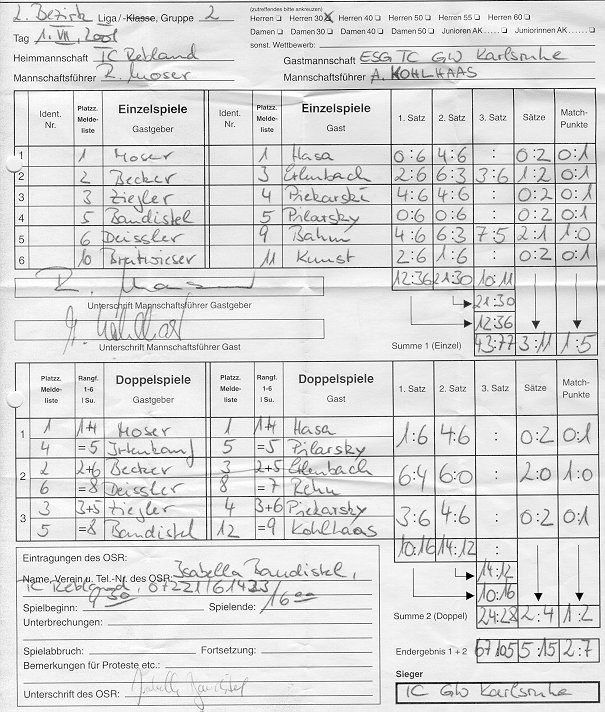 2. Bezirk Liga /-Klasse, Gruppe 2
(zutreffendes bitte ankreuzen)
Herren Herren 30 Herren 40 Herren 50 Herren 55 Herren 60
Tag 1. VII. 2001
Damen Damen 30 Damen 40 Damen 50 Junioren AK..... Juniorinnen AK.....
sonst. Wettbewerb:
Heimmannschaft TC Rebland Gastmannschaft ESG TC GW Karlsruhe
Mannschaftsführer R. Moser Mannschaftsführer A. KOHLHAAS
Ident. Nr. Platzz. Meldeliste Einzelspiele Gastgeber Ident. Nr. Platzz. Meldeliste Einzelspiele Gast 1. Satz 2. Satz 3. Satz Sätze Match-Punkte
1 1 Moser 1 Hasa 0:6 4:6 : 0:2 0:1
2 2 Becker 3 Erlenbach 2:6 6:3 3:6 1:2 0:1
3 3 Ziegler 4 Piekarski 4:6 4:6 : 0:2 0:1
4 5 Baudistel 5 Pilarsky 0:6 0:6 : 0:2 0:1
5 6 Deissler 9 Bahm 4:6 6:3 7:5 2:1 1:0
6 10 Breitwieser 11 Kunst 2:6 1:6 : 0:2 0:1
12:36 21:30 10:11
Unterschrift Mannschaftsführer Gastgeber
21:30
12:36
Unterschrift Mannschaftsführer Gast
Summe 1 (Einzel) 43:77 3:11 1:5
Platzz. Meldeliste Rangf. 1-6 / Su. Doppelspiele Gastgeber Platzz. Meldeliste Rangf. 1-6 / Su. Doppelspiele Gast 1. Satz 2. Satz 3. Satz Sätze Match-Punkte
1 1 1+4 Moser 1 1+4 Hasa 1:6 4:6 : 0:2 0:1
4 =5 Irtenkauf 5 =5 Pilarsky
2 2 2+6 Becker 3 2+5 Erlenbach 6:4 6:0 : 2:0 1:0
6 =8 Deissler 8 =7 Rehn
3 3 3+5 Ziegler 4 3+6 Piekarsky 3:6 4:6 : 0:2 0:1
5 =8 Baudistel 12 =9 Kohlhaas
10:16 14:12 :
Eintragungen des OSR:
14:12
Name, Verein u. Tel.-Nr. des OSR: Isabella Baudistel,
TC Rebland, 07221/61433
10:16
Spielbeginn: 9 30 Spielende: 16 00
Summe 2 (Doppel) 24:28 2:4 1:2
Unterbrechungen:
Spielabbruch: Fortsetzung:
Endergebnis 1 + 2 67:105 5:15 2:7
Bemerkungen für Proteste etc.:
Sieger
Unterschrift des OSR:
TC GW Karlsruhe